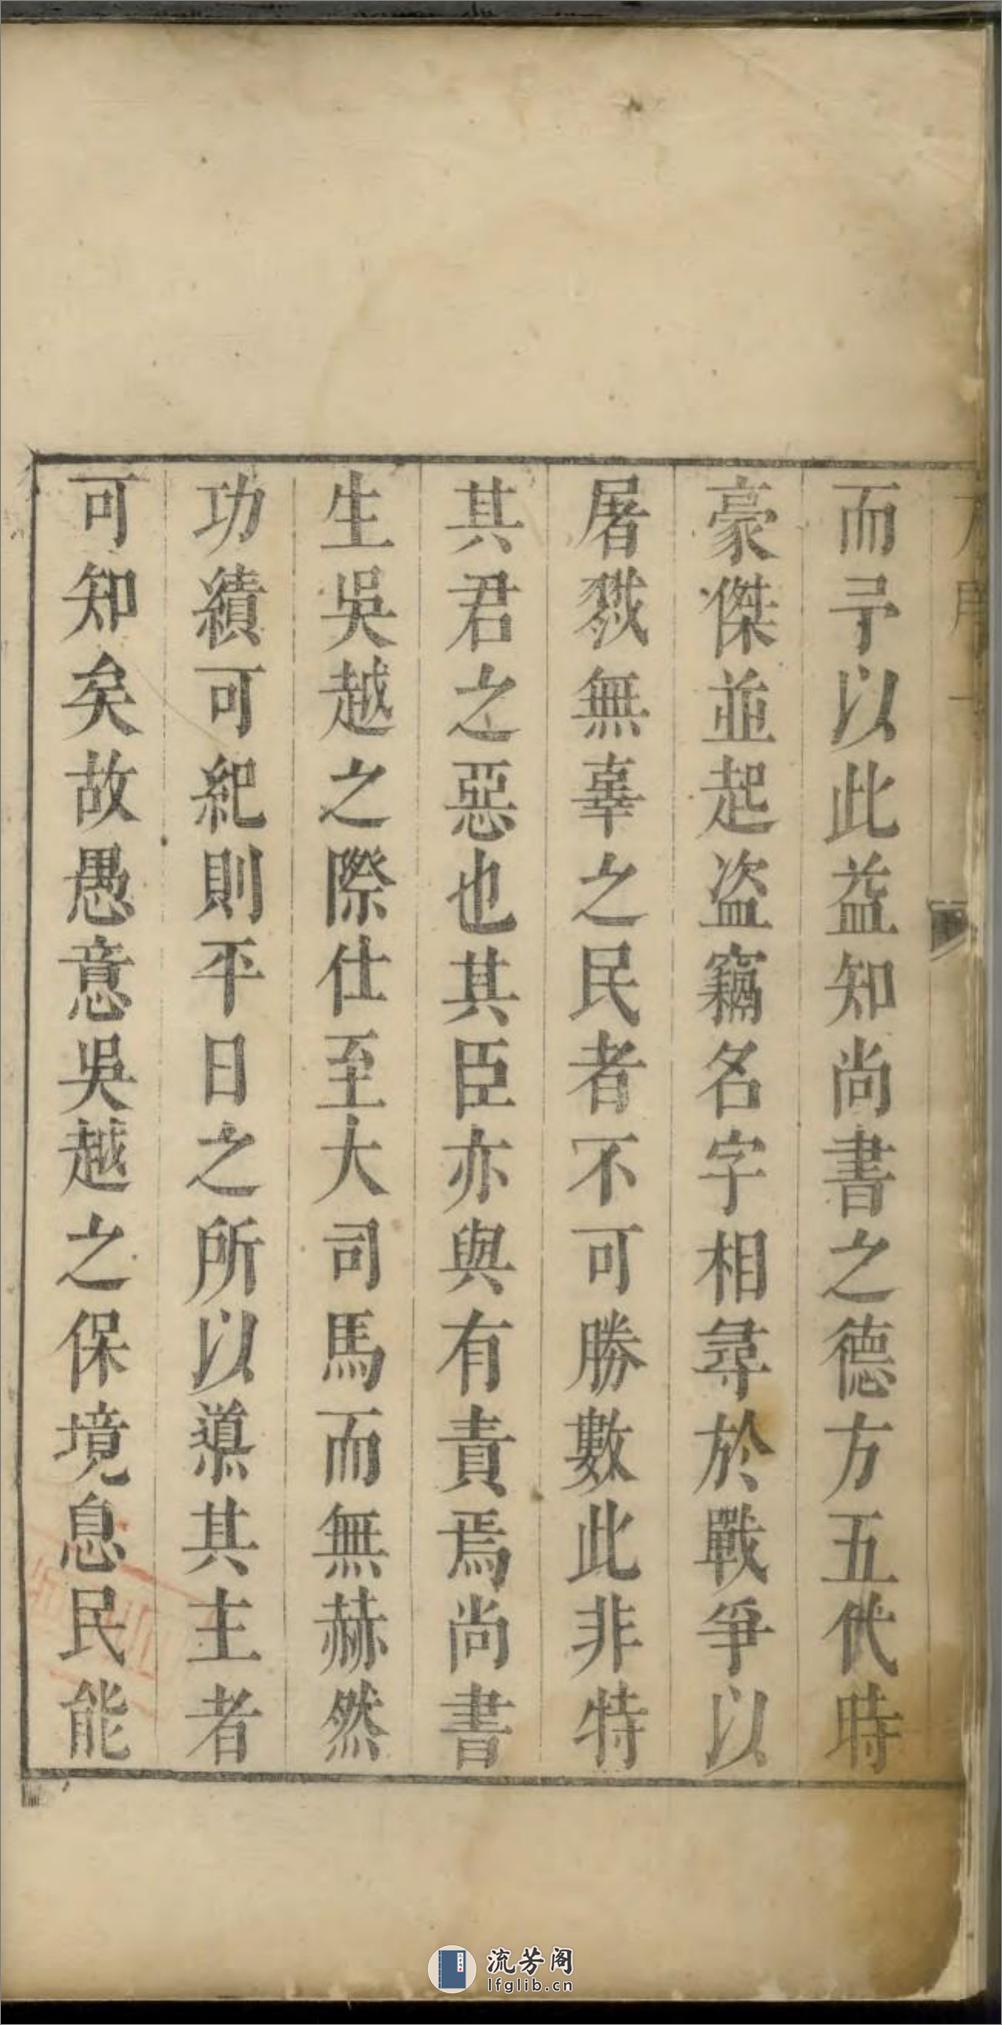 而予以此益知尚書之德方五代時
豪傑並起盜竊名字相尋於戰爭以
屠戮無辜之民者不可勝數此非特
其君之惡也其臣亦與有責焉尚書
生吳越之際仕至大司馬而無赫然
功績可紀則平日之所以導其主者
可知矣故愚意吳越之保境息民能
流芳阁
lfglib.cn